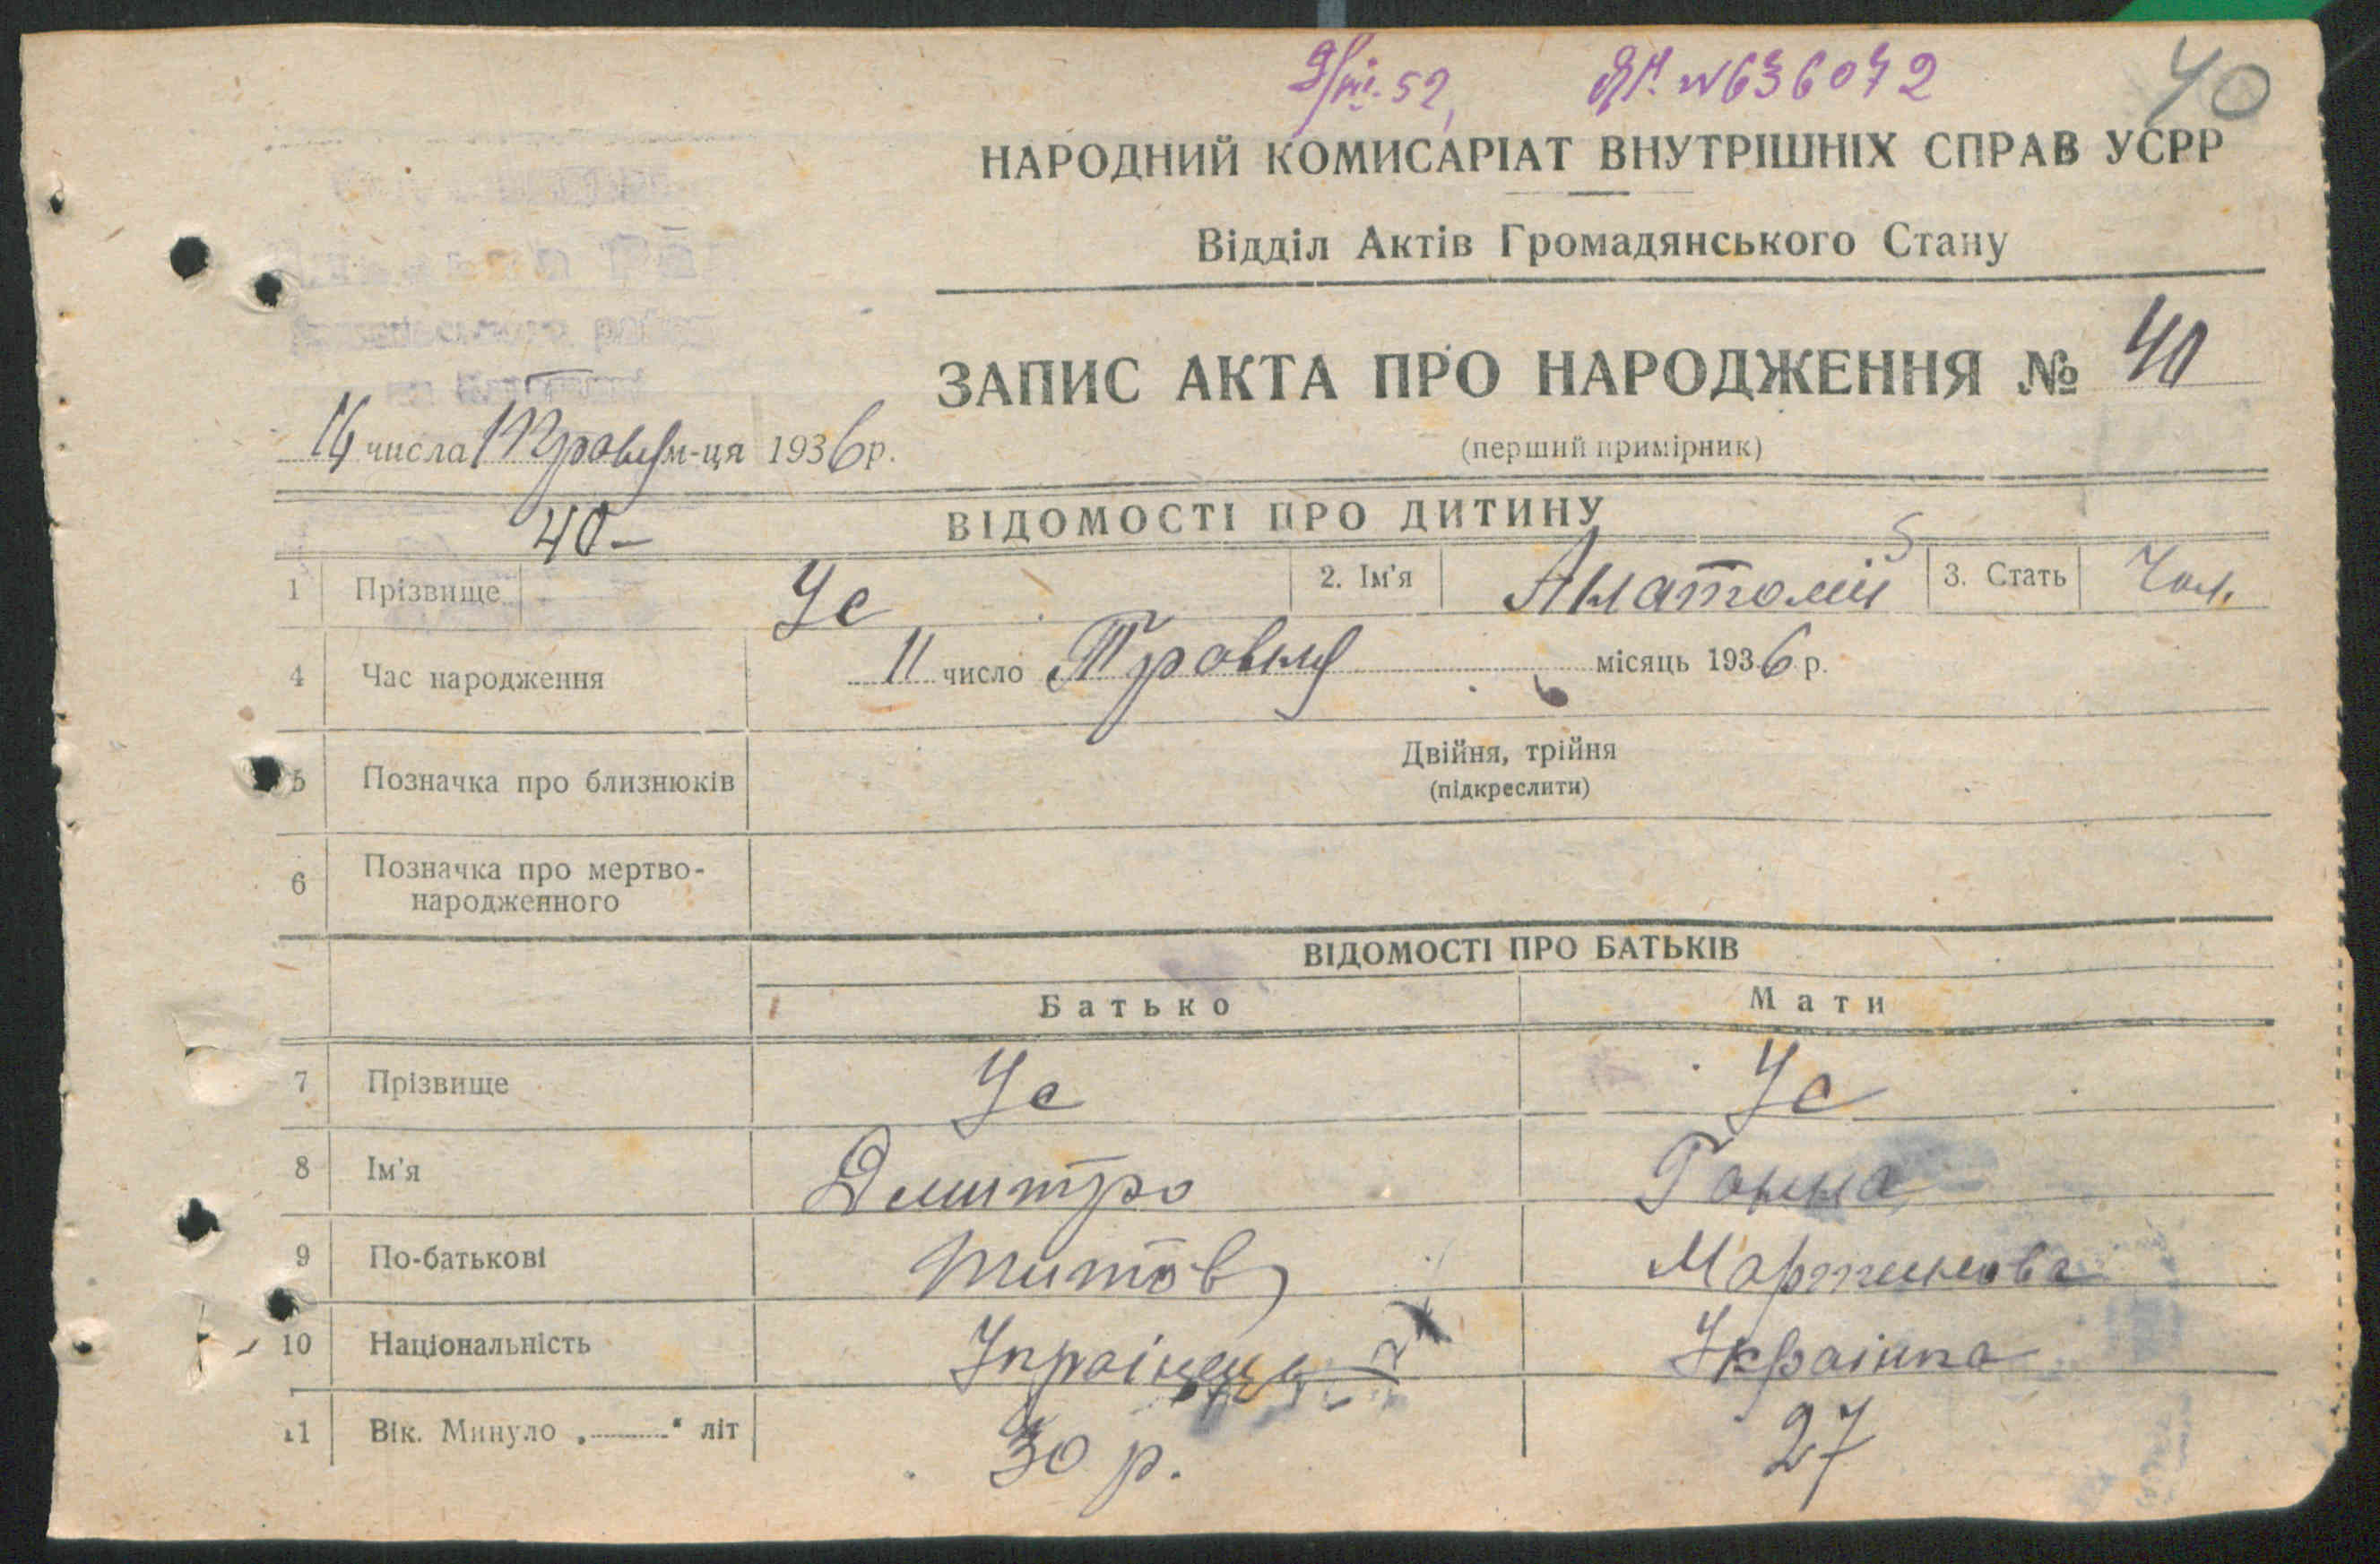 9/VII-52, ЯН. №636072 40
НАРОДНИЙ КОМИСАРІАТ ВНУТРІШНІХ СПРАВ УСРР
Відділ Актів Громадянського Стану
ЗАПИС АКТА ПРО НАРОДЖЕННЯ № 40
(перший примірник)
14 числа Травня м-ця 1936 р.
40-
ВІДОМОСТІ ПРО ДИТИНУ
1 Прізвище Ус 2. Ім'я Анатолій 3. Стать Чол.
4 Час народження 11 число Травня місяць 1936 р.
5 Позначка про близнюків Двійня, трійня
(підкреслити)
6 Позначка про мертво-
народженного
ВІДОМОСТІ ПРО БАТЬКІВ
Батько Мати
7 Прізвище Ус Ус
8 Ім'я Дмитро Ганна
9 По-батькові Титов Мартинова
10 Національність Українець Українка
11 Вік. Минуло „ — “ літ 30 р. 27